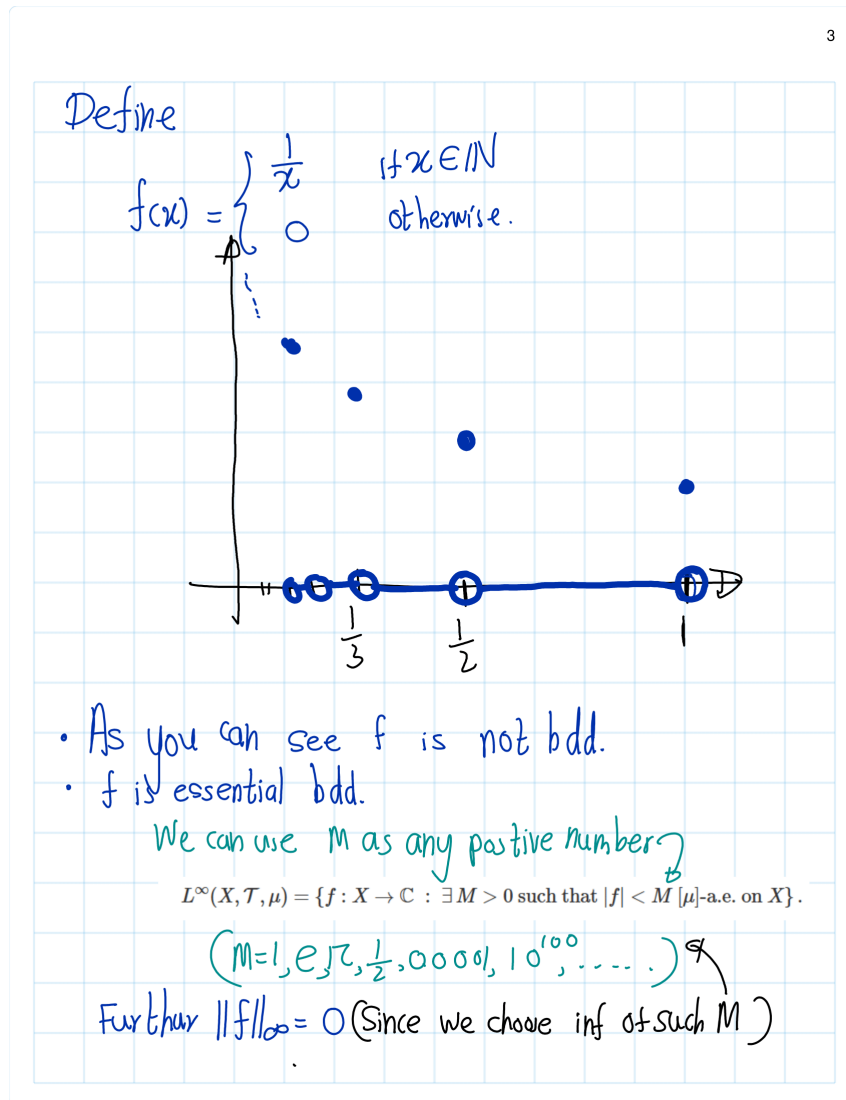 3
Define
f(x) = { 1/x if x ∈ ℕ
0 otherwise.
1/3 1/2 1
• As you can see f is not bdd.
• f is essential bdd.
We can use M as any postive number
L^∞(X, 𝒯, μ) = {f : X → ℂ : ∃ M > 0 such that |f| < M [μ]-a.e. on X} .
(M=1, e, π, 1/2, 0.0001, 10^100, .....)
Furthur ||f||_∞ = 0 (Since we choose inf of such M)